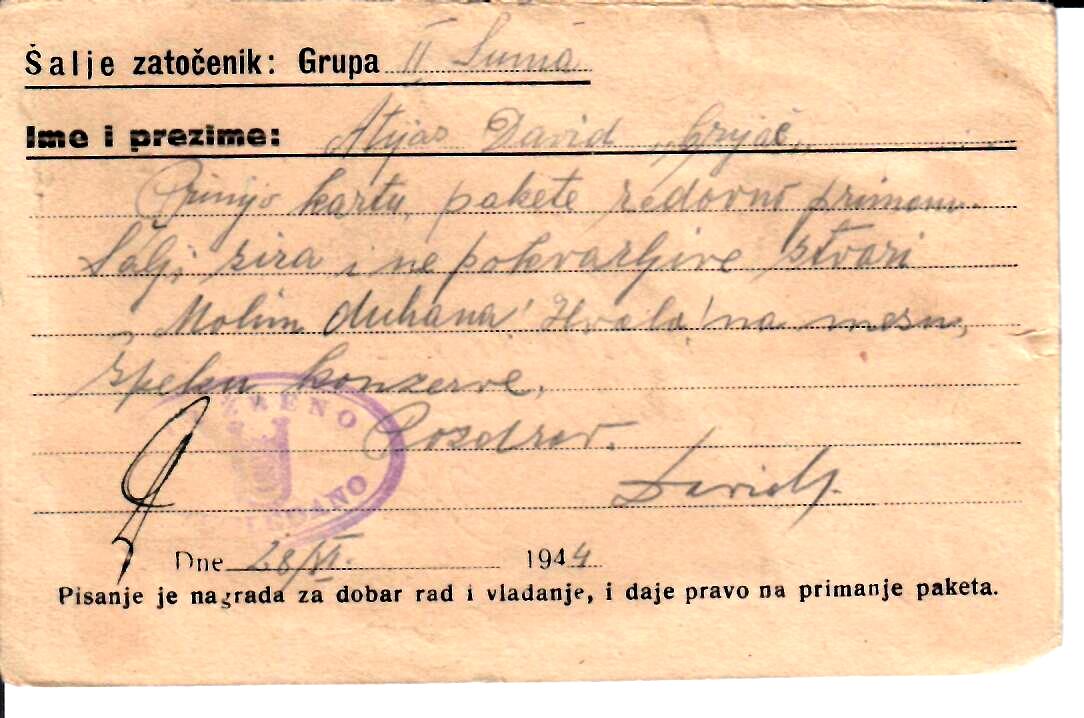 Šalje zatočenik: Grupa II Šuma
Ime i prezime: Atijas David
Primijo kartu, pakete redovno primam.
Šalji sira i ne pokvarljive stvari
Molim duhana! Hvala! na mesu,
špeku konzerve.
Pozdrav.
David
Dne 28/VI. 1944
Pisanje je nagrada za dobar rad i vladanje, i daje pravo na primanje paketa.